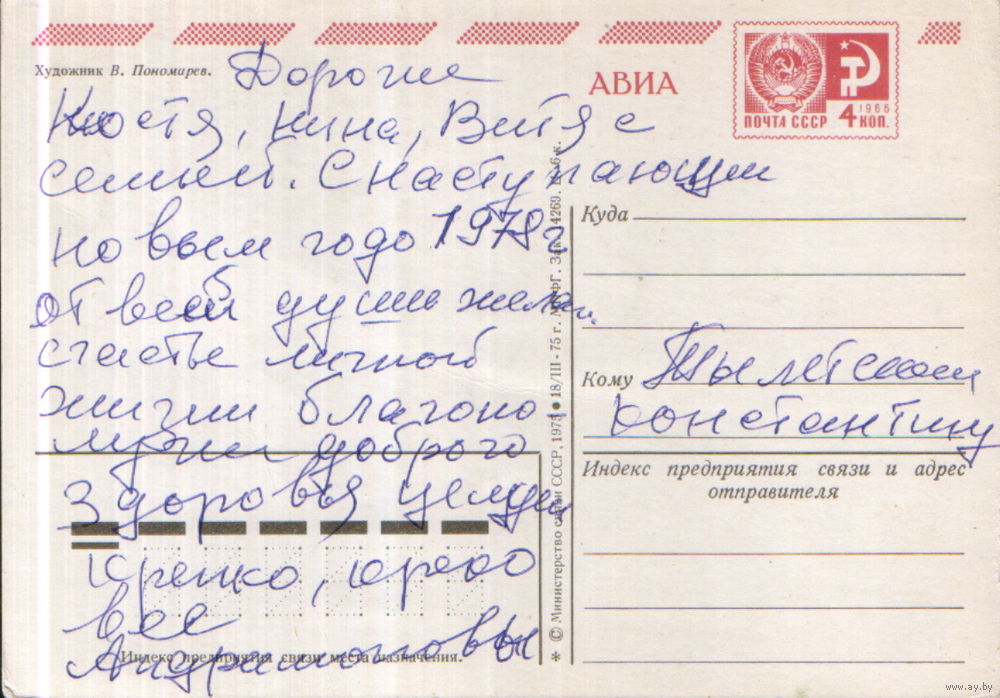 Художник В. Пономарев.
АВИА
1966
ПОЧТА СССР 4 КОП.
Дорогие
Костя, Нина, Витя с
семьей. С наступающим
новым годо 1978 г
от всей души желаем
счастье личной
жизни благопо
лучи доброго
здоровья целуем
крепко,
все
Андриановы
Куда
Кому Тылетскому
Константину
Индекс предприятия связи и адрес
отправителя
Индекс предприятия связи места назначения.
* © Министерство связи СССР, 1975 ● 18/III - 75 г.
www.ay.by